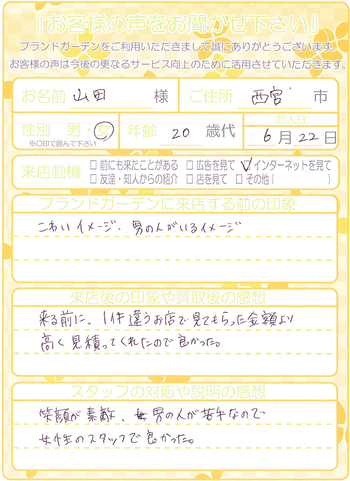 『お客様の声をお聞かせ下さい』
ブランドガーデンをご利用いただきまして誠にありがとうございます。
お客様の声は今後の更なるサービス向上のために活用させていただきます。
お名前 山田 様 ご住所 西宮 市
性別 男・女 年齢 20 歳代 記入日 6月22日
※〇印で囲んで下さい
来店動機 □前にも来たことがある □広告を見て ☑インターネットを見て
□友達・知人からの紹介 □店を見て □その他( )
ブランドガーデンに来店する前の印象
こわいイメージ、男の人がいるイメージ
来店後の印象や買取後の感想
来る前に、1件違うお店で見てもらった金額より
高く見積ってくれたので良かった。
スタッフの対応や説明の感想
笑顔が素敵、男の人が苦手なので
女性のスタッフで良かった。